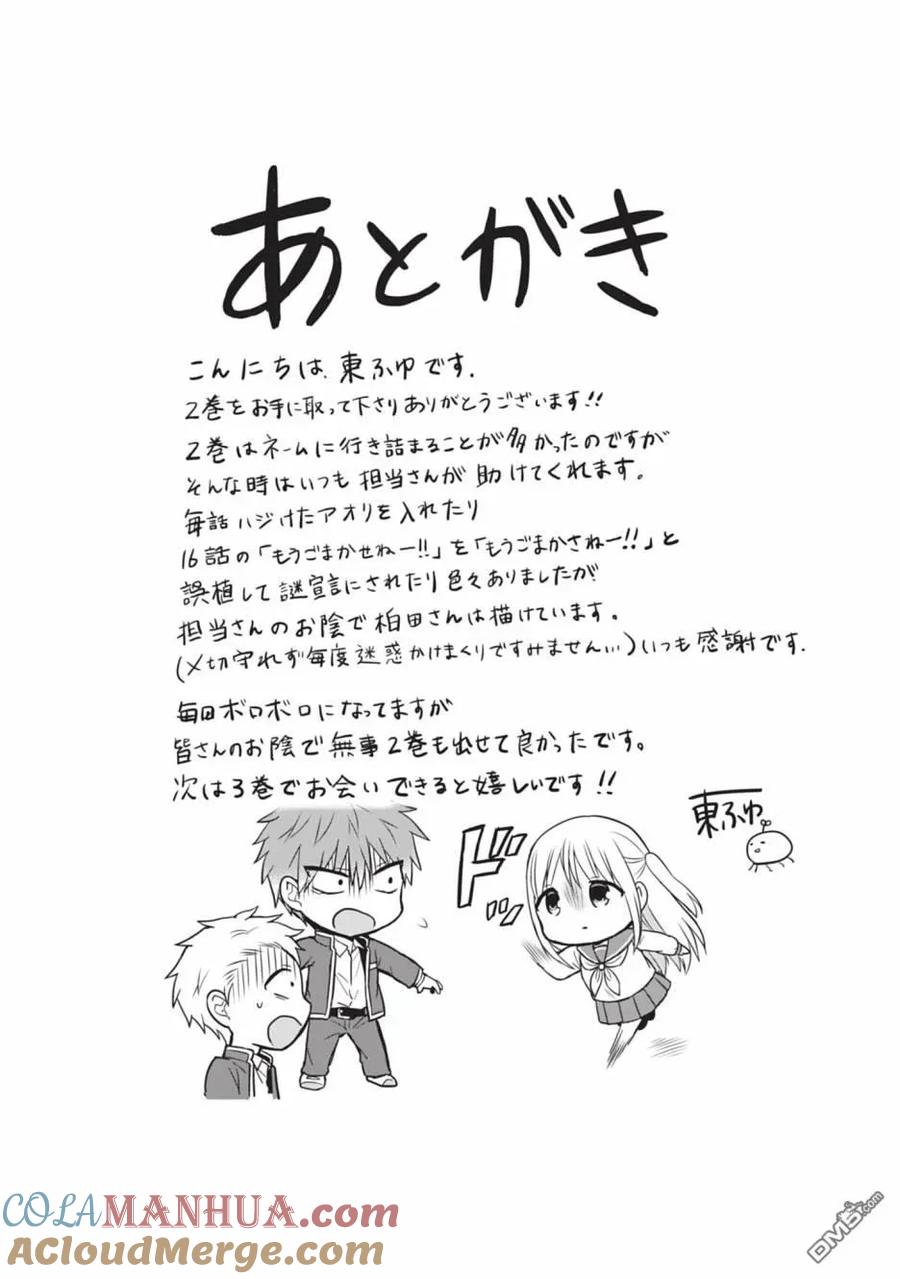 あとがき
こんにちは、東ふゆです.
2巻をお手に取って下さりありがとうございます!!
2巻はネームに行き詰まることが多かったのですが
そんな時はいつも担当さんが助けてくれます。
毎話ハジけたアオリを入れたり
16話の「もうごまかせねー!!」を「もうごまかさねー!!」と
誤植して謎宣言にされたり色々ありましたが
担当さんのお陰で柏田さんは描けています。
(〆切守れず毎度迷惑かけまくりですみません…)いつも感謝です.
毎日ボロボロになってますが
皆さんのお陰で無事2巻も出せて良かったです。
次は3巻でお会いできると嬉しいです!!
東ふゆ
ドドド
COLAMANHUA.com
ACloudMerge.com
DM5.com